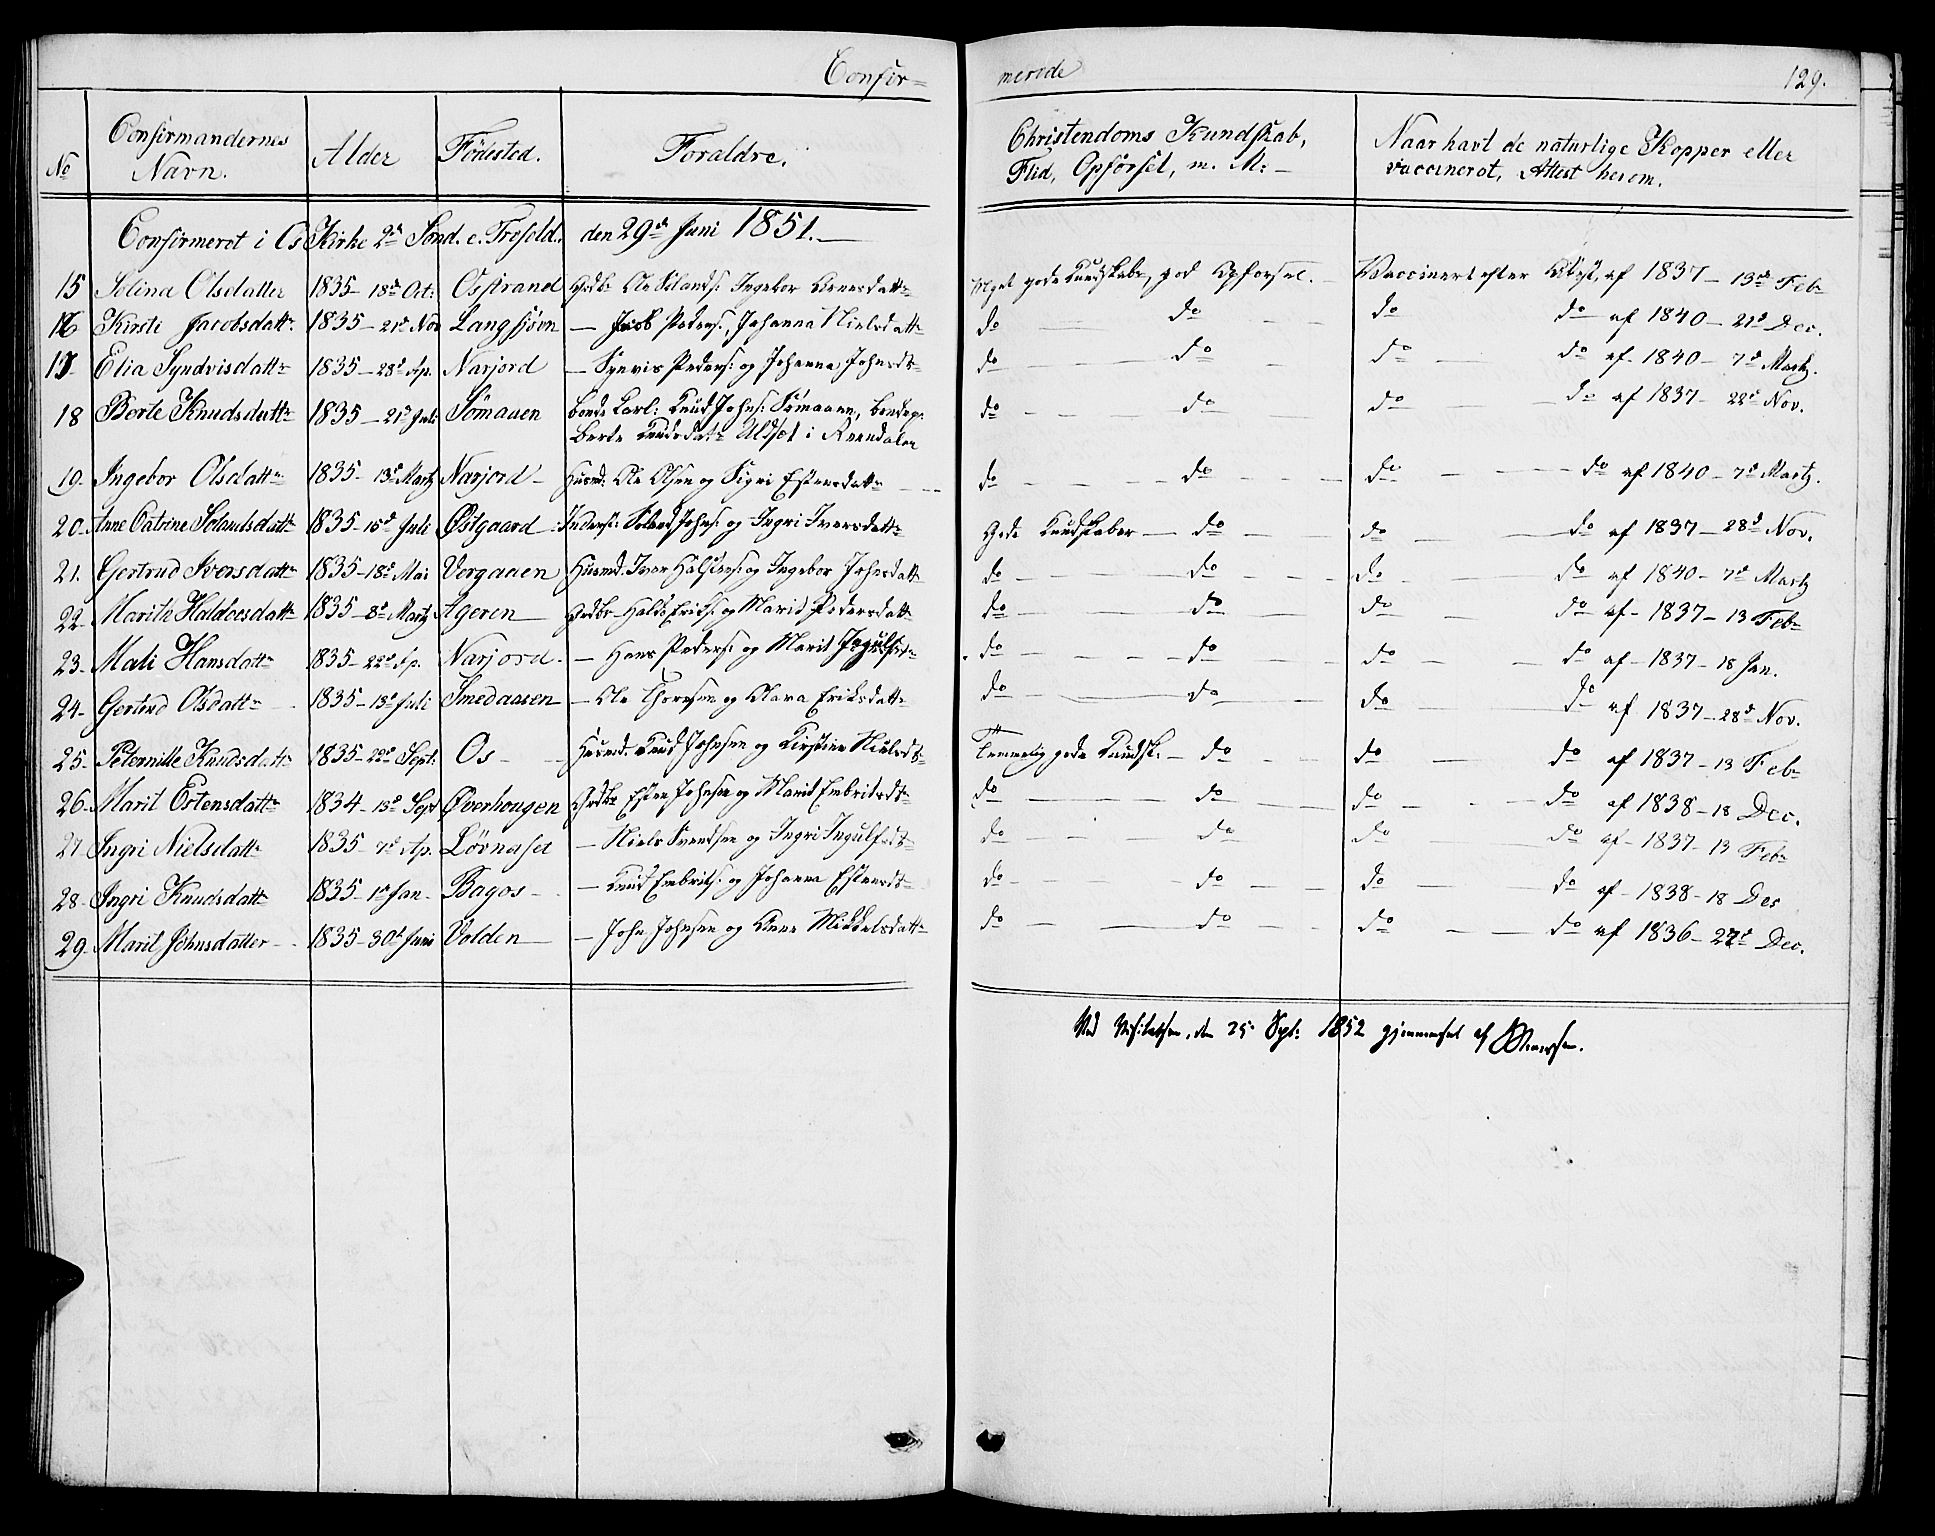 Confir=
merede
129.
No
Confirmandernes Navn.
Alder
Födested.
Foraldre.
Christendoms Kundskab, Flid, Opförsel, m. M: —
Naar havt de naturlige Kopper eller vaccineret, Attest herom.
Confirmeret i Os Kirke 2d Sönd. e. Trefold. den 29d Juni 1851. —
15 Olsdatter 1835 — 18d Oct: Osstrand Ole Ingebor Meget gode Kundskaber, god Opførsel. — Vaccinert efter Attest af 1837 — 13d Feb
16 Kirsti Jacobsdattr 1835 — 21d Nov Langsjövn — Jacob Peders:, Johanna Nielsdattr do — do — — do do af 1840 — 21d Dec.
17 Elia Syndvisdattr 1835 — 28d Ap. Narjord — Synvis Peders: og Johanna Johnsdtr do — do — do — do af 1840 — 7d Martz.
18 Börte Knudsdattr 1835 — 21d Juli Sömaaen Knud Johns: do — — do do — do af 1837 — 22d Nov.
Berte Knudsdatr i
19. Ingebor Olsdattr 1835 — 13d Martz Narjord — Husmd: Ole Olsen og Sigri Estensdattr — do — — do — do — — do af 1840 — 7d Martz.
20. Anne Catrine 1835 — 15d Juli Østgaard Johns: og Ingri Iversdattr Gode Kundskaber — do — — do — do af 1837 — 28d Nov.
21. Gertrud Iversdattr 1835 — 18d Mai Vergaaen Husmd: Iver og Ingebor Johnsdatt do — — do — do — do af 1840 — 7d Martz
22 — Marith Haldorsdattr 1835 — 8d Martz Ageren Grdbr Haldr Eriks: og Marit Pedersdattr do — do — do — do af — 1837 — 13 Feb
23. Mali Hansdattr 1835 — 22d Ap. Narjord. — Hans Peders: og Marit do — — do — do — do af — 1837 — 18 Jan.
24 — Gertrud Olsdattr 1835 — 13d Juli Smedaasen — Ole og Eriksdattr do — do — do — do af 1837 — 28d Nov.
25. Peternille Knudsdattr 1835 — 22d Sept: Os — Husmd: Knud Johnsen og Kirstine Nielsdtr Temmelig gode Kundsk: — do — do — do af 1837 — 13 Feb
26 — Marit Estensdattr 1834 — 13d Sept Øverhougen Grdbr Esten Johnsen og Marit Embritsdtr do — do — do — do af 1838 — 18 Dec.
27 Ingri Nielsdattr 1835 — 7d Ap. Lövnaset — Niels Svendsen og Ingri Ingulfsdtr do — do — do — do af — 1837 — 13 Feb
28 — Ingri Knudsdattr 1835 — 1d Jan — Bagos — — Knud Embrits: og Johanna Estensdtr do — do — do — do af — 1838 — 18 Des
29 — Marit Johnsdatter — 1835 — 30d Juni Volden — John Johnsen og Anne Mikkelsdattr do — do — do — do af 1836 — 27d Dec.
Ved Visitatsen, den 25 Sept: 1852 gjennemseet af